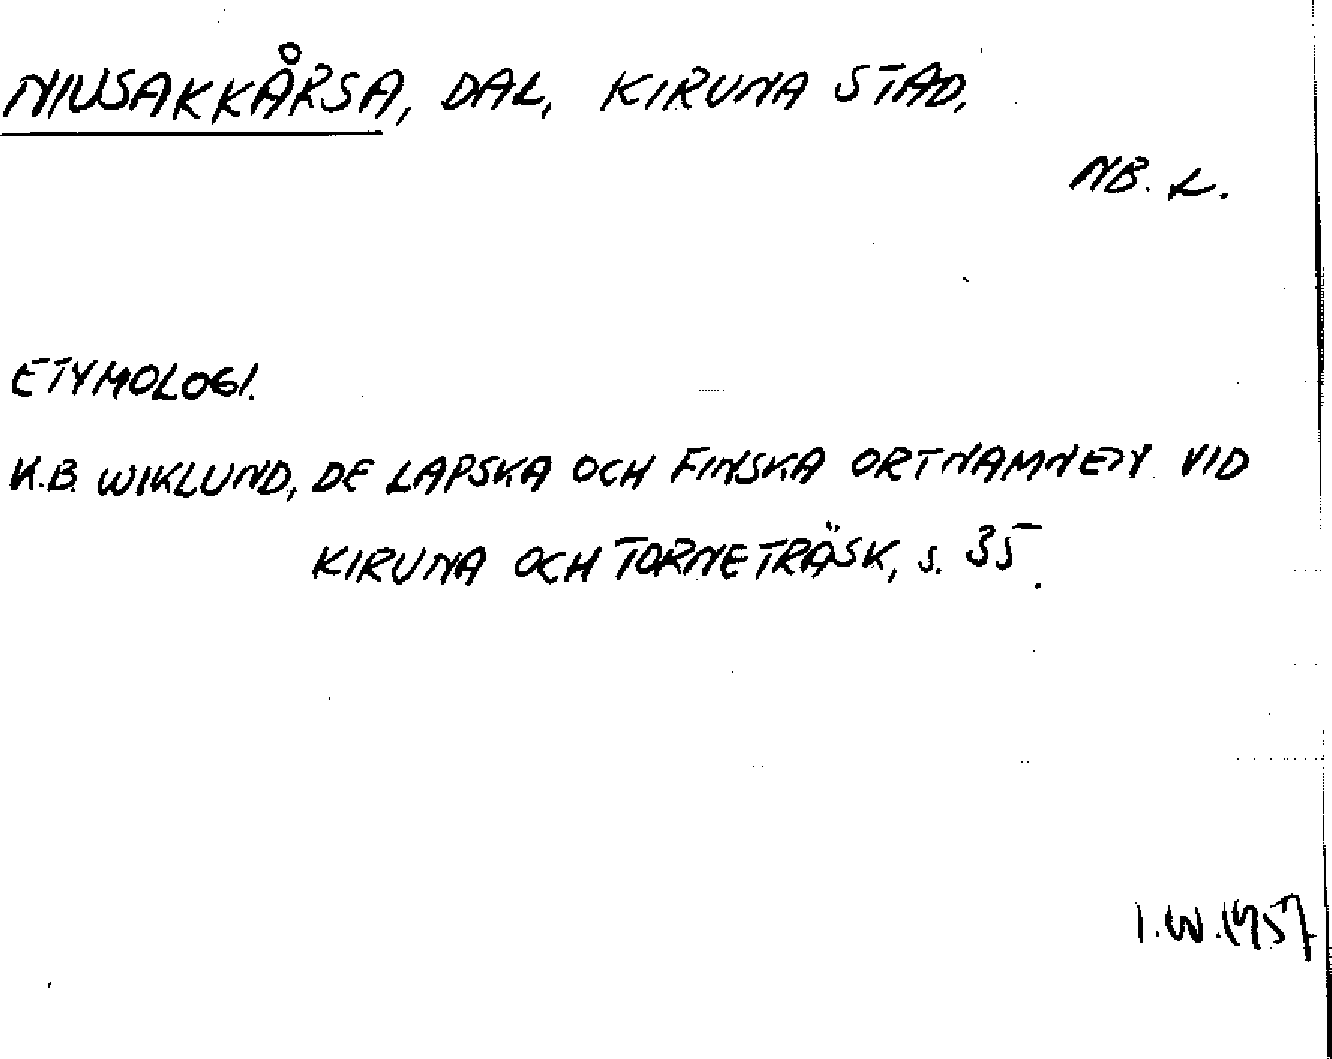 NIUSAKKÅRSA, DAL, KIRUNA STAD,
NB. L.
ETYMOLOGI.
K.B. WIKLUND, DE LAPSKA OCH FINSKA ORTNAMNEN VID
KIRUNA OCH TORNETRÄSK, s. 35.
I.W. 1957